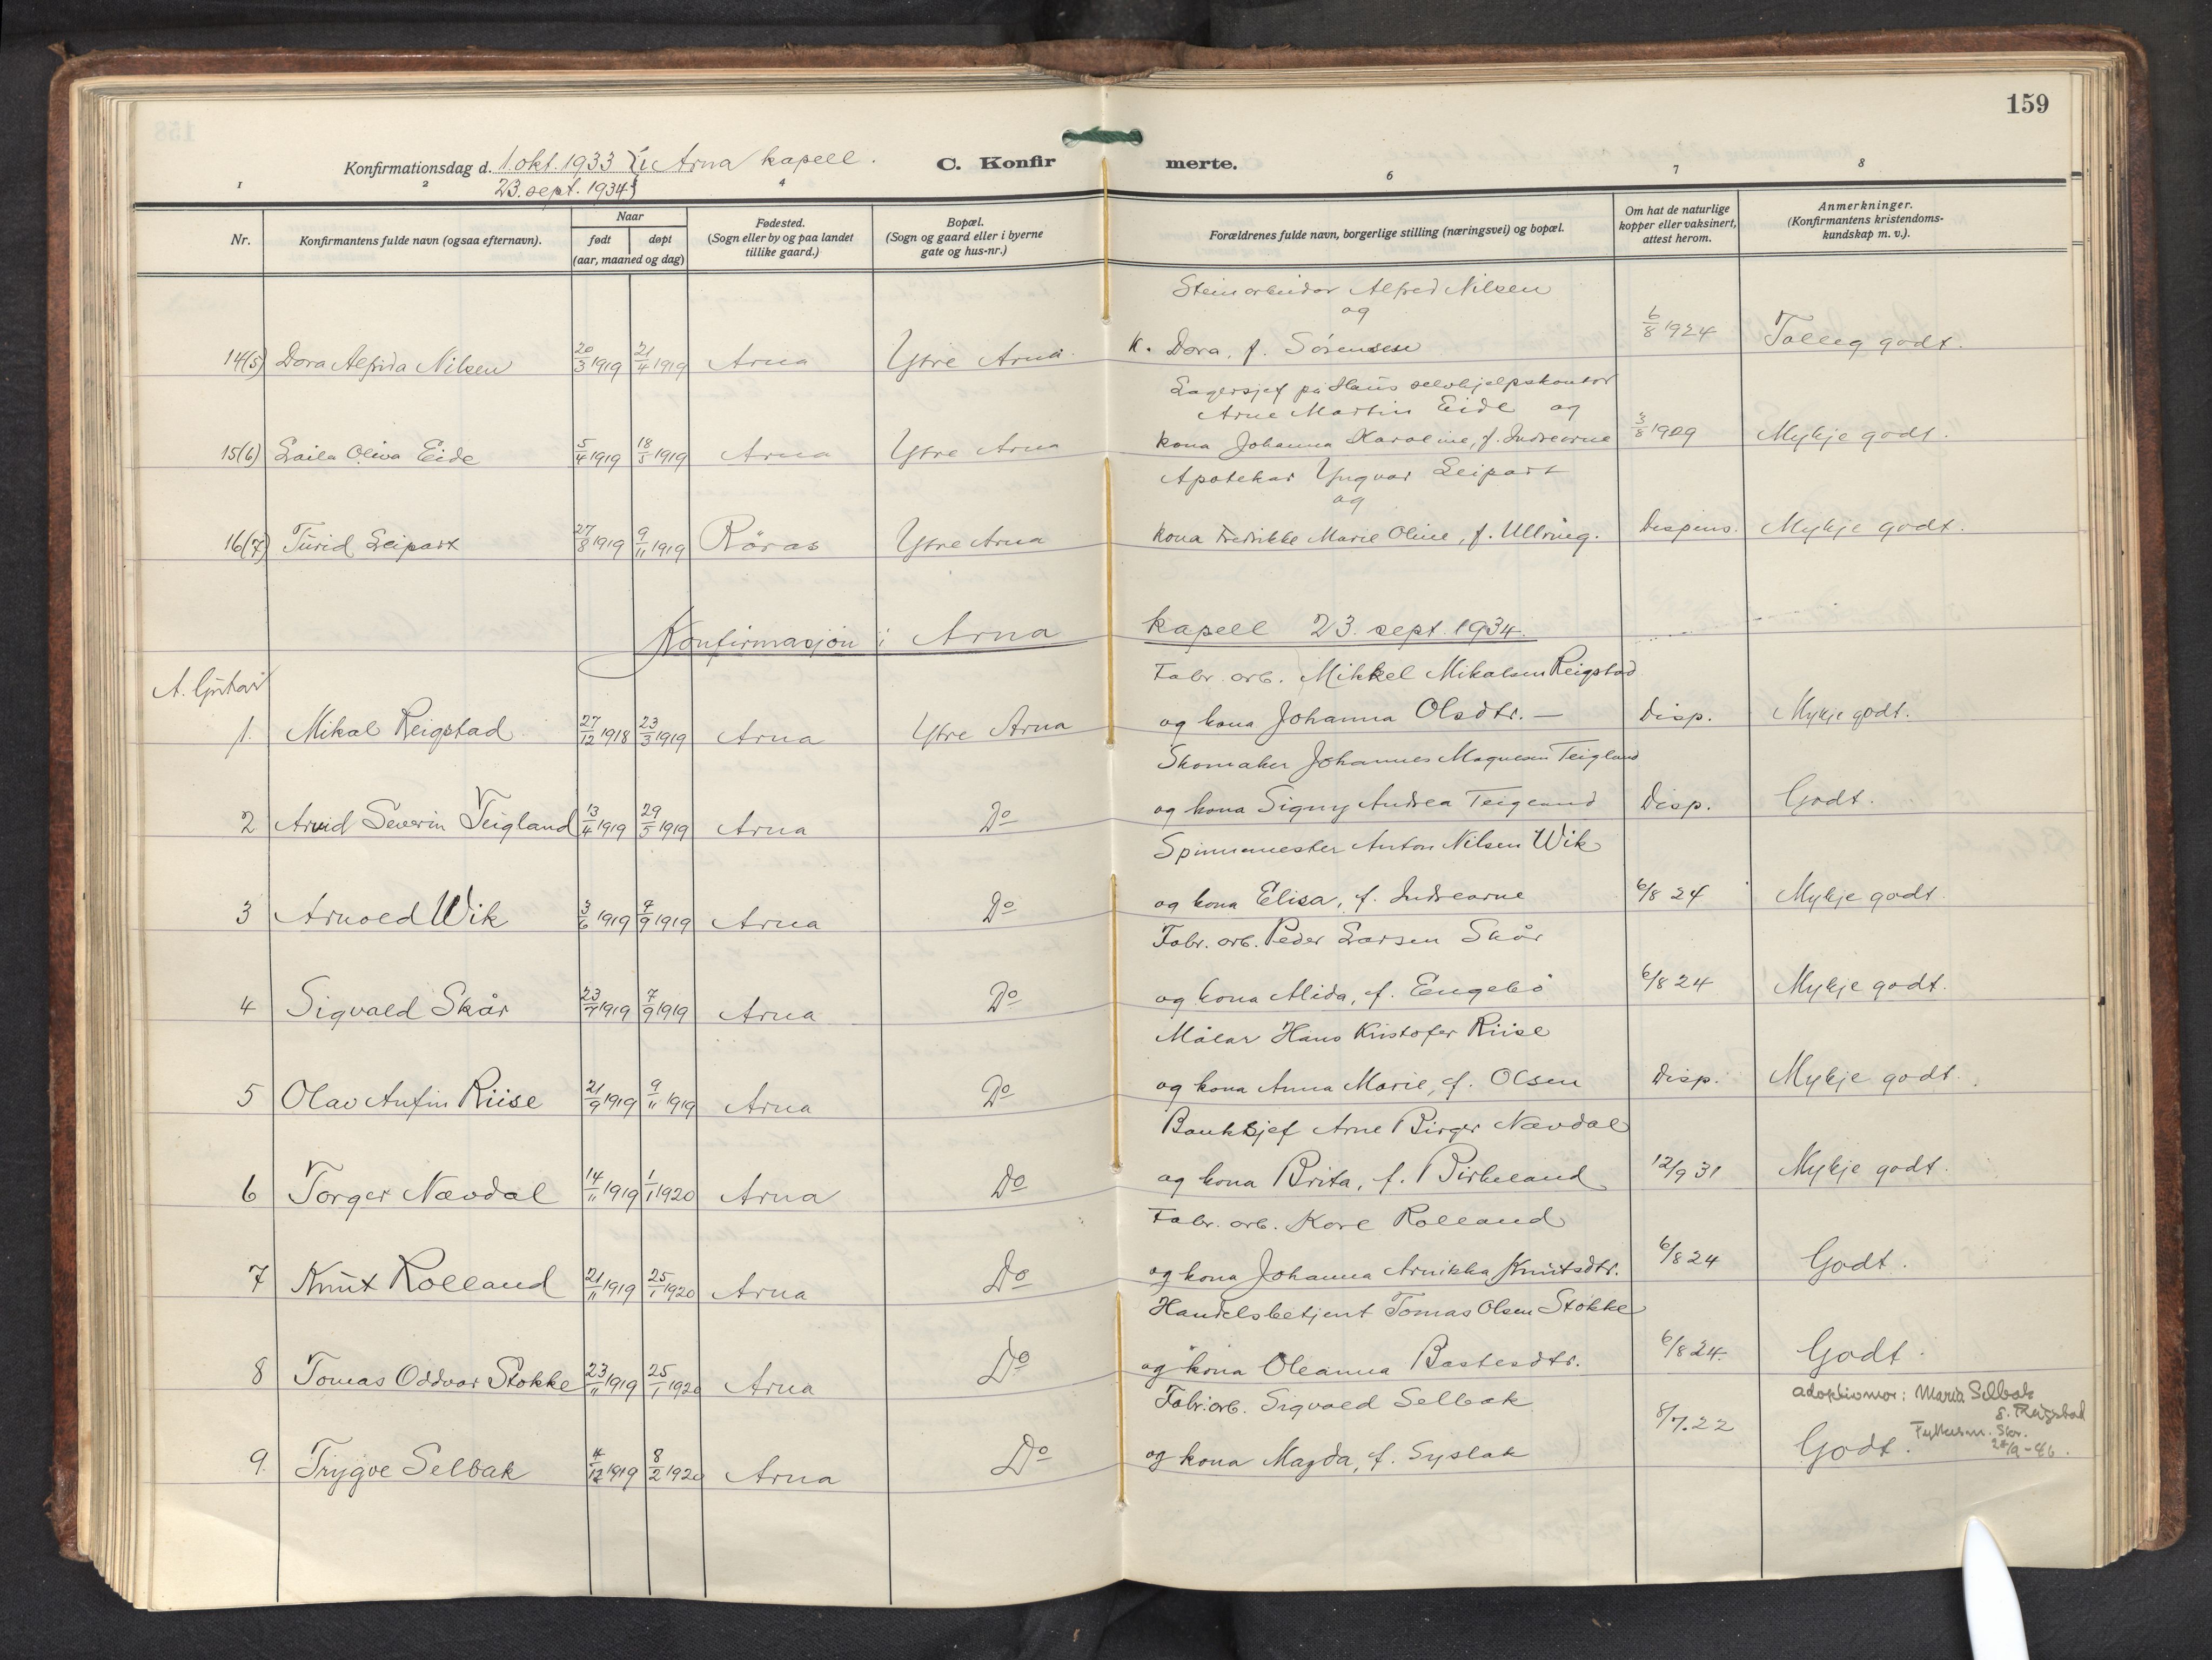 159
Konfirmationsdag d. 1. okt. 1933 } i Arna kapell. C. Konfirmerte.
23. sept. 1934 }
1 2 4 6 7 8
Nr. Konfirmantens fulde navn (ogsaa efternavn). Naar født døpt (aar, maaned og dag) Fødested. (Sogn eller by og paa landet tillike gaard.) Bopæl. (Sogn og gaard eller i byerne gate og hus-nr.) Forældrenes fulde navn, borgerlige stilling (næringsvei) og bopæl. Om hat de naturlige kopper eller vaksinert, attest herom. Anmerkninger. (Konfirmantens kristendoms-kundskap m. v.).
Steinarbeidar Alfred Nilsen
og
14(5) Dora Alfrida Nilsen 20/3 1919 21/4 1919 Arna Ytre Arna. k. Dora, f. Sörensen 6/8 1924 Tolleg godt.
Lagersjef på Haus selvhjelpskontor
Arne Martin Eide og
15(6) Laila Oliva Eide 5/4 1919 18/5 1919 Arna Ytre Arna kona Johanna Karoline, f. Indrearne 3/8 1929 Mykje godt.
Apotekar Yngvar Leipart
og
16(7) Turid Leipart 27/8 1919 9/11 1919 Röros Ytre Arna kona Fredrikke Marie Oline, f. Ullring. Dispens. Mykje godt.
Konfirmasjon i Arna kapell 23. sept. 1934.
A. Gutar
Fabr. arb. Mikkel Mikalsen Reigstad
1. Mikal Reigstad 27/12 1918 23/3 1919 Arna Ytre Arna og kona Johanna Olsdtr. — Disp. Mykje godt.
Skomaker Johannes Magnesen Teigland
2 Arvid Severin Teigland 13/4 1919 29/5 1919 Arna Do og kona Signy Andrea Teigland Disp. Godt.
Spinnemester Anton Nilsen Wik
3 Arnold Wik 3/6 1919 7/9 1919 Arna Do og kona Elisa, f. Indrearne 6/8 24 Mykje godt
Fabr. arb. Peder Larsen Skår
4 Sigvald Skår 23/7 1919 7/9 1919 Arna Do og kona Alida, f. Engebö 6/8 24 Mykje godt.
Målar Hans Kristofer Riise
5 Olav Anfin Riise 21/9 1919 9/11 1919 Arna Do og kona Anna Marie, f. Olsen Disp. Mykje godt.
Banksjef Arne Birger Nævdal
6 Torger Nævdal 14/11 1919 1/1 1920 Arna Do og kona Brita, f. Birkeland 12/9 31 Mykje godt.
Fabr. arb. Kore Rolland
7 Knut Rolland 21/11 1919 25/1 1920 Arna Do og kona Johanna Arnikka Knutsdtr. 6/8 24 Godt.
Handelsbetjent Tomas Olsen Stokke
8 Tomas Oddvar Stokke 23/11 1919 25/1 1920 Arna Do og kona Oleanna Bastesdtr. 6/8 24. Godt.
adoptivmor: Maria Selbak
f. Reigstad
Fabr. arb. Sigvald Selbak
Fylkesm. Skr.
9. Trygve Selbak 4/12 1919 8/2 1920 Arna Do og kona Magda, f. Syslak 8/7. 22 Godt.